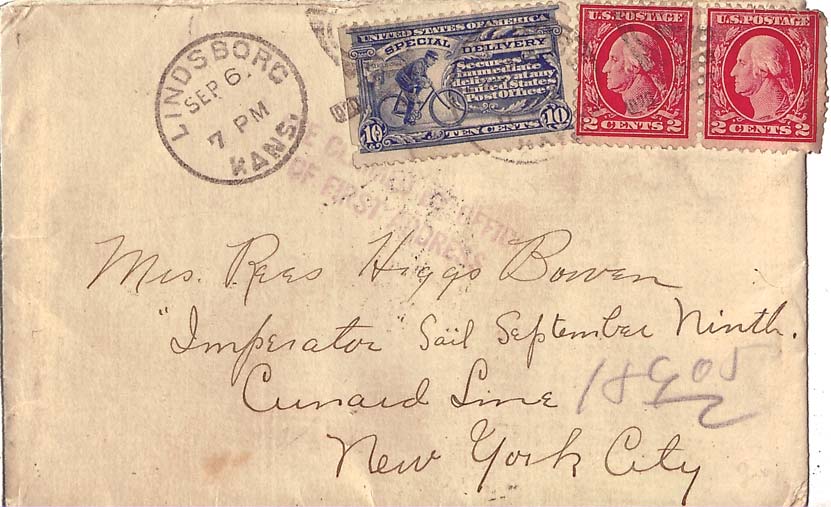 LINDSBORG
SEP 6.
7 PM
KANS.
UNITED STATES OF AMERICA
SPECIAL DELIVERY
Secures
immediate
delivery at any
United States
Post office
10 TEN CENTS 10
U.S. POSTAGE
2 CENTS 2
U.S. POSTAGE
2 CENTS 2
OFFICE
OF FIRST ADDRESS
Mrs. Rees Higgs Bowen
"Imperator" Sail September Ninth.
Cunard Line
New York City